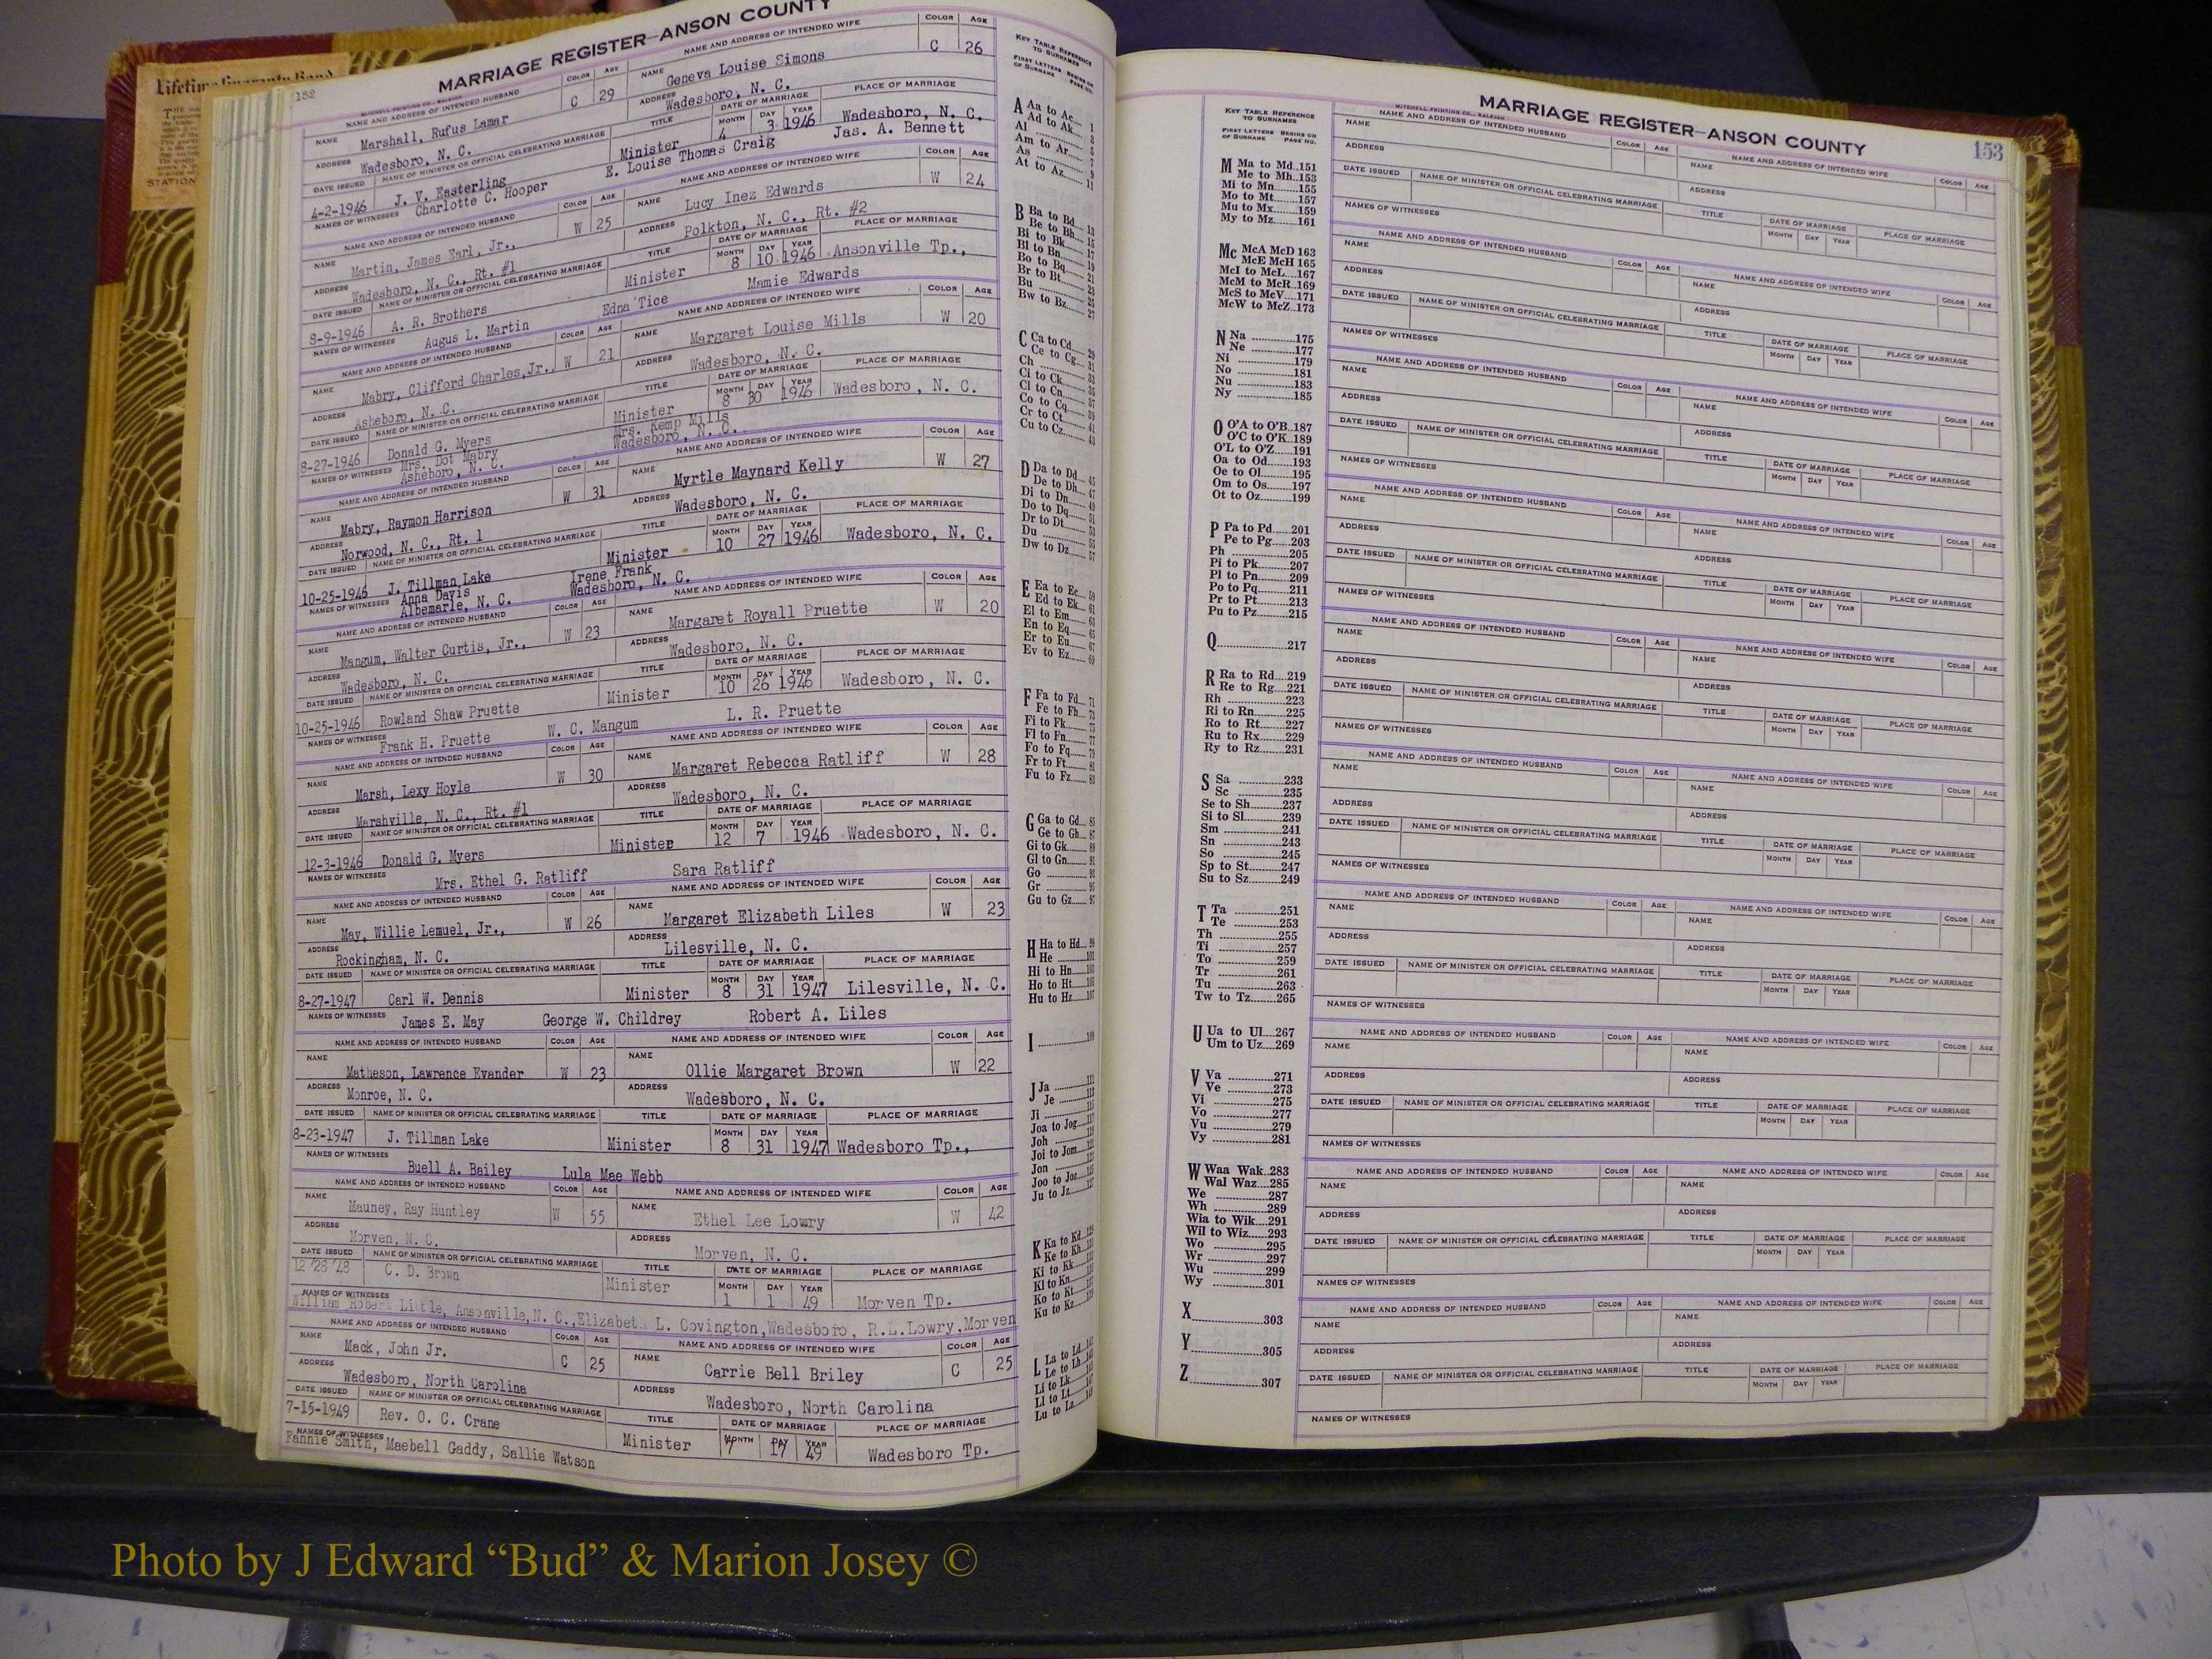 Lifetime Guaranty Bond
STATION
152
MARRIAGE REGISTER—ANSON COUNTY
MITCHELL PRINTING CO., RALEIGH
NAME AND ADDRESS OF INTENDED HUSBAND COLOR AGE NAME AND ADDRESS OF INTENDED WIFE COLOR AGE
NAME Marshall, Rufus Lamar C 29 NAME Geneva Louise Simons C 26
ADDRESS Wadesboro, N. C. ADDRESS Wadesboro, N. C.
DATE ISSUED NAME OF MINISTER OR OFFICIAL CELEBRATING MARRIAGE TITLE DATE OF MARRIAGE PLACE OF MARRIAGE
MONTH DAY YEAR
4-2-1946 J. V. Easterling Minister 4 3 1946 Wadesboro, N. C.
NAMES OF WITNESSES Charlotte C. Hooper E. Louise Thomas Craig Jas. A. Bennett
NAME AND ADDRESS OF INTENDED HUSBAND COLOR AGE NAME AND ADDRESS OF INTENDED WIFE COLOR AGE
NAME Martin, James Earl, Jr., W 25 NAME Lucy Inez Edwards W 24
ADDRESS Wadesboro, N. C., Rt. #1 ADDRESS Polkton, N. C., Rt. #2
DATE ISSUED NAME OF MINISTER OR OFFICIAL CELEBRATING MARRIAGE TITLE DATE OF MARRIAGE PLACE OF MARRIAGE
MONTH DAY YEAR
8-9-1946 A. R. Brothers Minister 8 10 1946 Ansonville Tp.,
NAMES OF WITNESSES Augus L. Martin Edna Tice Mamie Edwards
NAME AND ADDRESS OF INTENDED HUSBAND COLOR AGE NAME AND ADDRESS OF INTENDED WIFE COLOR AGE
NAME Mabry, Clifford Charles,Jr., W 21 NAME Margaret Louise Mills W 20
ADDRESS Asheboro, N. C. ADDRESS Wadesboro, N. C.
DATE ISSUED NAME OF MINISTER OR OFFICIAL CELEBRATING MARRIAGE TITLE DATE OF MARRIAGE PLACE OF MARRIAGE
MONTH DAY YEAR
8-27-1946 Donald G. Myers Minister 8 30 1946 Wadesboro, N. C.
NAMES OF WITNESSES Mrs. Dot Mabry Mrs. Kemp Mills
Asheboro, N. C. Wadesboro, N. C.
NAME AND ADDRESS OF INTENDED HUSBAND COLOR AGE NAME AND ADDRESS OF INTENDED WIFE COLOR AGE
NAME Mabry, Raymon Harrison W 31 NAME Myrtle Maynard Kelly W 27
ADDRESS Norwood, N. C., Rt. 1 ADDRESS Wadesboro, N. C.
DATE ISSUED NAME OF MINISTER OR OFFICIAL CELEBRATING MARRIAGE TITLE DATE OF MARRIAGE PLACE OF MARRIAGE
MONTH DAY YEAR
10-25-1946 J. Tillman Lake Minister 10 27 1946 Wadesboro, N. C.
NAMES OF WITNESSES Anna Davis Irene Frank
Albemarle, N. C. Wadesboro, N. C.
NAME AND ADDRESS OF INTENDED HUSBAND COLOR AGE NAME AND ADDRESS OF INTENDED WIFE COLOR AGE
NAME Mangum, Walter Curtis, Jr., W 23 NAME Margaret Royall Pruette W 20
ADDRESS Wadesboro, N. C. ADDRESS Wadesboro, N. C.
DATE ISSUED NAME OF MINISTER OR OFFICIAL CELEBRATING MARRIAGE TITLE DATE OF MARRIAGE PLACE OF MARRIAGE
MONTH DAY YEAR
10-25-1946 Rowland Shaw Pruette Minister 10 26 1946 Wadesboro, N. C.
NAMES OF WITNESSES Frank H. Pruette W. C. Mangum L. R. Pruette
NAME AND ADDRESS OF INTENDED HUSBAND COLOR AGE NAME AND ADDRESS OF INTENDED WIFE COLOR AGE
NAME Marsh, Lexy Hoyle W 30 NAME Margaret Rebecca Ratliff W 28
ADDRESS Marshville, N. C., Rt. #1 ADDRESS Wadesboro, N. C.
DATE ISSUED NAME OF MINISTER OR OFFICIAL CELEBRATING MARRIAGE TITLE DATE OF MARRIAGE PLACE OF MARRIAGE
MONTH DAY YEAR
12-3-1946 Donald G. Myers Minister 12 7 1946 Wadesboro, N. C.
NAMES OF WITNESSES Mrs. Ethel G. Ratliff Sara Ratliff
NAME AND ADDRESS OF INTENDED HUSBAND COLOR AGE NAME AND ADDRESS OF INTENDED WIFE COLOR AGE
NAME May, Willie Lemuel, Jr., W 26 NAME Margaret Elizabeth Liles W 23
ADDRESS Rockingham, N. C. ADDRESS Lilesville, N. C.
DATE ISSUED NAME OF MINISTER OR OFFICIAL CELEBRATING MARRIAGE TITLE DATE OF MARRIAGE PLACE OF MARRIAGE
MONTH DAY YEAR
8-27-1947 Carl W. Dennis Minister 8 31 1947 Lilesville, N. C.
NAMES OF WITNESSES James E. May George W. Childrey Robert A. Liles
NAME AND ADDRESS OF INTENDED HUSBAND COLOR AGE NAME AND ADDRESS OF INTENDED WIFE COLOR AGE
NAME Matheson, Lawrence Evander W 23 NAME Ollie Margaret Brown W 22
ADDRESS Monroe, N. C. ADDRESS Wadesboro, N. C.
DATE ISSUED NAME OF MINISTER OR OFFICIAL CELEBRATING MARRIAGE TITLE DATE OF MARRIAGE PLACE OF MARRIAGE
MONTH DAY YEAR
8-23-1947 J. Tillman Lake Minister 8 31 1947 Wadesboro Tp.,
NAMES OF WITNESSES Buell A. Bailey Lula Mae Webb
NAME AND ADDRESS OF INTENDED HUSBAND COLOR AGE NAME AND ADDRESS OF INTENDED WIFE COLOR AGE
NAME Mauney, Ray Huntley W 55 NAME Ethel Lee Lowry W 42
ADDRESS Morven, N. C. ADDRESS Morven, N. C.
DATE ISSUED NAME OF MINISTER OR OFFICIAL CELEBRATING MARRIAGE TITLE DATE OF MARRIAGE PLACE OF MARRIAGE
MONTH DAY YEAR
12/28/48 C. D. Brown Minister 1 1 49 Morven Tp.
NAMES OF WITNESSES
William Robert Little, Ansonville,N. C.,Elizabeth L. Covington,Wadesboro, R.L.Lowry,Morven
NAME AND ADDRESS OF INTENDED HUSBAND COLOR AGE NAME AND ADDRESS OF INTENDED WIFE COLOR AGE
NAME Mack, John Jr. C 25 NAME Carrie Bell Briley C 25
ADDRESS Wadesboro, North Carolina ADDRESS Wadesboro, North Carolina
DATE ISSUED NAME OF MINISTER OR OFFICIAL CELEBRATING MARRIAGE TITLE DATE OF MARRIAGE PLACE OF MARRIAGE
MONTH DAY YEAR
7-15-1949 Rev. O. C. Crane Minister 7 17 49 Wadesboro Tp.
NAMES OF WITNESSES
Fannie Smith, Maebell Gaddy, Sallie Watson
KEY TABLE REFERENCE
TO SURNAMES
FIRST LETTERS BEGINS ON
OF SURNAME PAGE NO.
A Aa to Ac 1
Ad to Ak 3
Al 5
Am to Ar 7
As 9
At to Az 11
B Ba to Bd 13
Be to Bh 15
Bi to Bk 17
Bl to Bn 19
Bo to Bq 21
Br to Bt 23
Bu 25
Bw to Bz 27
C Ca to Cd 29
Ce to Cg 31
Ch
Ci to Ck 35
Cl to Cn 37
Co to Cq 39
Cr to Ct 41
Cu to Cz 43
D Da to Dd 45
De to Dh 47
Di to Dn 49
Do to Dq 51
Dr to Dt 53
Du 55
Dw to Dz 57
E Ea to Ec 59
Ed to Ek 61
El to Em 63
En to Eq 65
Er to Eu 67
Ev to Ez 69
F Fa to Fd 71
Fe to Fh 73
Fi to Fk 75
Fl to Fn 77
Fo to Fq 79
Fr to Ft 81
Fu to Fz 83
G Ga to Gd 85
Ge to Gh 87
Gi to Gk 89
Gl to Gn 91
Go 93
Gr 95
Gu to Gz 97
H Ha to Hd 99
He 101
Hi to Hn 103
Ho to Ht 105
Hu to Hz 107
I 109
J Ja 111
Je 113
Ji 115
Joa to Jog 117
Joh
Joi to Jom 121
Jon
Joo to Joz 125
Ju to Jz 127
K Ka to Kd 129
Ke to Kh 131
Ki to Kk
Kl to Kn
Ko to Kt
Ku to Kz
L La to Ld 141
Le to Lh
Li to Lk
Ll to Lt
Lu to Lz
KEY TABLE REFERENCE
TO SURNAMES
FIRST LETTERS BEGINS ON
OF SURNAME PAGE NO.
M Ma to Md 151
Me to Mh 153
Mi to Mn 155
Mo to Mt 157
Mu to Mx 159
My to Mz 161
Mc McA McD 163
McE McH 165
McI to McL 167
McM to McR 169
McS to McV 171
McW to McZ 173
N Na 175
Ne 177
Ni 179
No 181
Nu 183
Ny 185
O O'A to O'B 187
O'C to O'K 189
O'L to O'Z 191
Oa to Od 193
Oe to Ol 195
Om to Os 197
Ot to Oz 199
P Pa to Pd 201
Pe to Pg 203
Ph 205
Pi to Pk 207
Pl to Pn 209
Po to Pq 211
Pr to Pt 213
Pu to Pz 215
Q 217
R Ra to Rd 219
Re to Rg 221
Rh 223
Ri to Rn 225
Ro to Rt 227
Ru to Rx 229
Ry to Rz 231
S Sa 233
Sc 235
Se to Sh 237
Si to Sl 239
Sm 241
Sn 243
So 245
Sp to St 247
Su to Sz 249
T Ta 251
Te 253
Th 255
Ti 257
To 259
Tr 261
Tu 263
Tw to Tz 265
U Ua to Ul 267
Um to Uz 269
V Va 271
Ve 273
Vi 275
Vo 277
Vu 279
Vy 281
W Waa Wak 283
Wal Waz 285
We 287
Wh 289
Wia to Wik 291
Wil to Wiz 293
Wo 295
Wr 297
Wu 299
Wy 301
X 303
Y 305
Z 307
MARRIAGE REGISTER—ANSON COUNTY 153
MITCHELL PRINTING CO., RALEIGH
NAME AND ADDRESS OF INTENDED HUSBAND COLOR AGE NAME AND ADDRESS OF INTENDED WIFE COLOR AGE
NAME NAME
ADDRESS ADDRESS
DATE ISSUED NAME OF MINISTER OR OFFICIAL CELEBRATING MARRIAGE TITLE DATE OF MARRIAGE PLACE OF MARRIAGE
MONTH DAY YEAR
NAMES OF WITNESSES
NAME AND ADDRESS OF INTENDED HUSBAND COLOR AGE NAME AND ADDRESS OF INTENDED WIFE COLOR AGE
NAME NAME
ADDRESS ADDRESS
DATE ISSUED NAME OF MINISTER OR OFFICIAL CELEBRATING MARRIAGE TITLE DATE OF MARRIAGE PLACE OF MARRIAGE
MONTH DAY YEAR
NAMES OF WITNESSES
NAME AND ADDRESS OF INTENDED HUSBAND COLOR AGE NAME AND ADDRESS OF INTENDED WIFE COLOR AGE
NAME NAME
ADDRESS ADDRESS
DATE ISSUED NAME OF MINISTER OR OFFICIAL CELEBRATING MARRIAGE TITLE DATE OF MARRIAGE PLACE OF MARRIAGE
MONTH DAY YEAR
NAMES OF WITNESSES
NAME AND ADDRESS OF INTENDED HUSBAND COLOR AGE NAME AND ADDRESS OF INTENDED WIFE COLOR AGE
NAME NAME
ADDRESS ADDRESS
DATE ISSUED NAME OF MINISTER OR OFFICIAL CELEBRATING MARRIAGE TITLE DATE OF MARRIAGE PLACE OF MARRIAGE
MONTH DAY YEAR
NAMES OF WITNESSES
NAME AND ADDRESS OF INTENDED HUSBAND COLOR AGE NAME AND ADDRESS OF INTENDED WIFE COLOR AGE
NAME NAME
ADDRESS ADDRESS
DATE ISSUED NAME OF MINISTER OR OFFICIAL CELEBRATING MARRIAGE TITLE DATE OF MARRIAGE PLACE OF MARRIAGE
MONTH DAY YEAR
NAMES OF WITNESSES
NAME AND ADDRESS OF INTENDED HUSBAND COLOR AGE NAME AND ADDRESS OF INTENDED WIFE COLOR AGE
NAME NAME
ADDRESS ADDRESS
DATE ISSUED NAME OF MINISTER OR OFFICIAL CELEBRATING MARRIAGE TITLE DATE OF MARRIAGE PLACE OF MARRIAGE
MONTH DAY YEAR
NAMES OF WITNESSES
NAME AND ADDRESS OF INTENDED HUSBAND COLOR AGE NAME AND ADDRESS OF INTENDED WIFE COLOR AGE
NAME NAME
ADDRESS ADDRESS
DATE ISSUED NAME OF MINISTER OR OFFICIAL CELEBRATING MARRIAGE TITLE DATE OF MARRIAGE PLACE OF MARRIAGE
MONTH DAY YEAR
NAMES OF WITNESSES
NAME AND ADDRESS OF INTENDED HUSBAND COLOR AGE NAME AND ADDRESS OF INTENDED WIFE COLOR AGE
NAME NAME
ADDRESS ADDRESS
DATE ISSUED NAME OF MINISTER OR OFFICIAL CELEBRATING MARRIAGE TITLE DATE OF MARRIAGE PLACE OF MARRIAGE
MONTH DAY YEAR
NAMES OF WITNESSES
NAME AND ADDRESS OF INTENDED HUSBAND COLOR AGE NAME AND ADDRESS OF INTENDED WIFE COLOR AGE
NAME NAME
ADDRESS ADDRESS
DATE ISSUED NAME OF MINISTER OR OFFICIAL CELEBRATING MARRIAGE TITLE DATE OF MARRIAGE PLACE OF MARRIAGE
MONTH DAY YEAR
NAMES OF WITNESSES
NAME AND ADDRESS OF INTENDED HUSBAND COLOR AGE NAME AND ADDRESS OF INTENDED WIFE COLOR AGE
NAME NAME
ADDRESS ADDRESS
DATE ISSUED NAME OF MINISTER OR OFFICIAL CELEBRATING MARRIAGE TITLE DATE OF MARRIAGE PLACE OF MARRIAGE
MONTH DAY YEAR
NAMES OF WITNESSES
Photo by J Edward “Bud” & Marion Josey ©